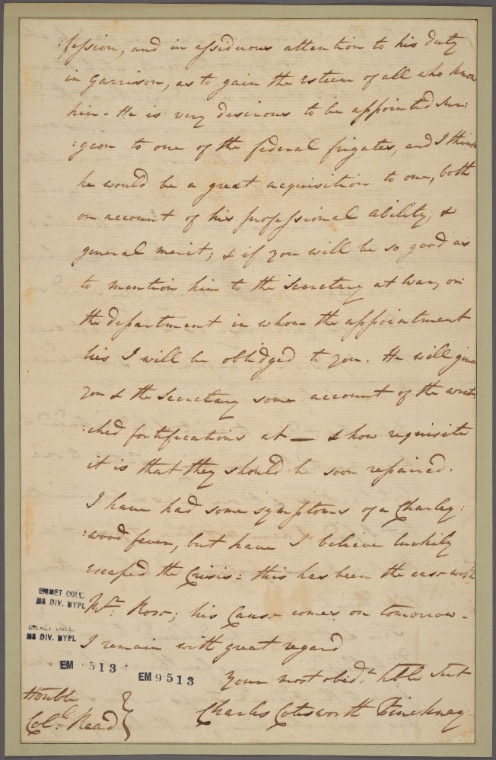 :fession, and in assiduous attention to his duty
in Garrison, as to gain the esteem of all who know
him - He is very desirous to be appointed Sur:
:geon to one of the federal frigates, and I think
he would be a great acquisition to one, both
on account of his professional ability, &
general merit; & if you will be so good as
to mention him to the Secretary at War, or
the department in whom the appointment
lies I will be oblidged to you. He will give
you & the Secretary some account of the wret:
:ched fortifications at — & how requisite
it is that they should be soon repaired.
I have had some symptoms of a Charles:
wood fever, but have I believe luckily
escaped the Crisis: this has been the case with
Mr. Rose; his Cause comes on tomorrow -
I remain with great regard
Your most obedt. hble Servt
Charles Cotesworth Pinckney
Honble
Col: Read
EMMET COLL.
MS DIV. NYPL
EMMET COLL.
MS DIV. NYPL
EM 9513
EM 9513